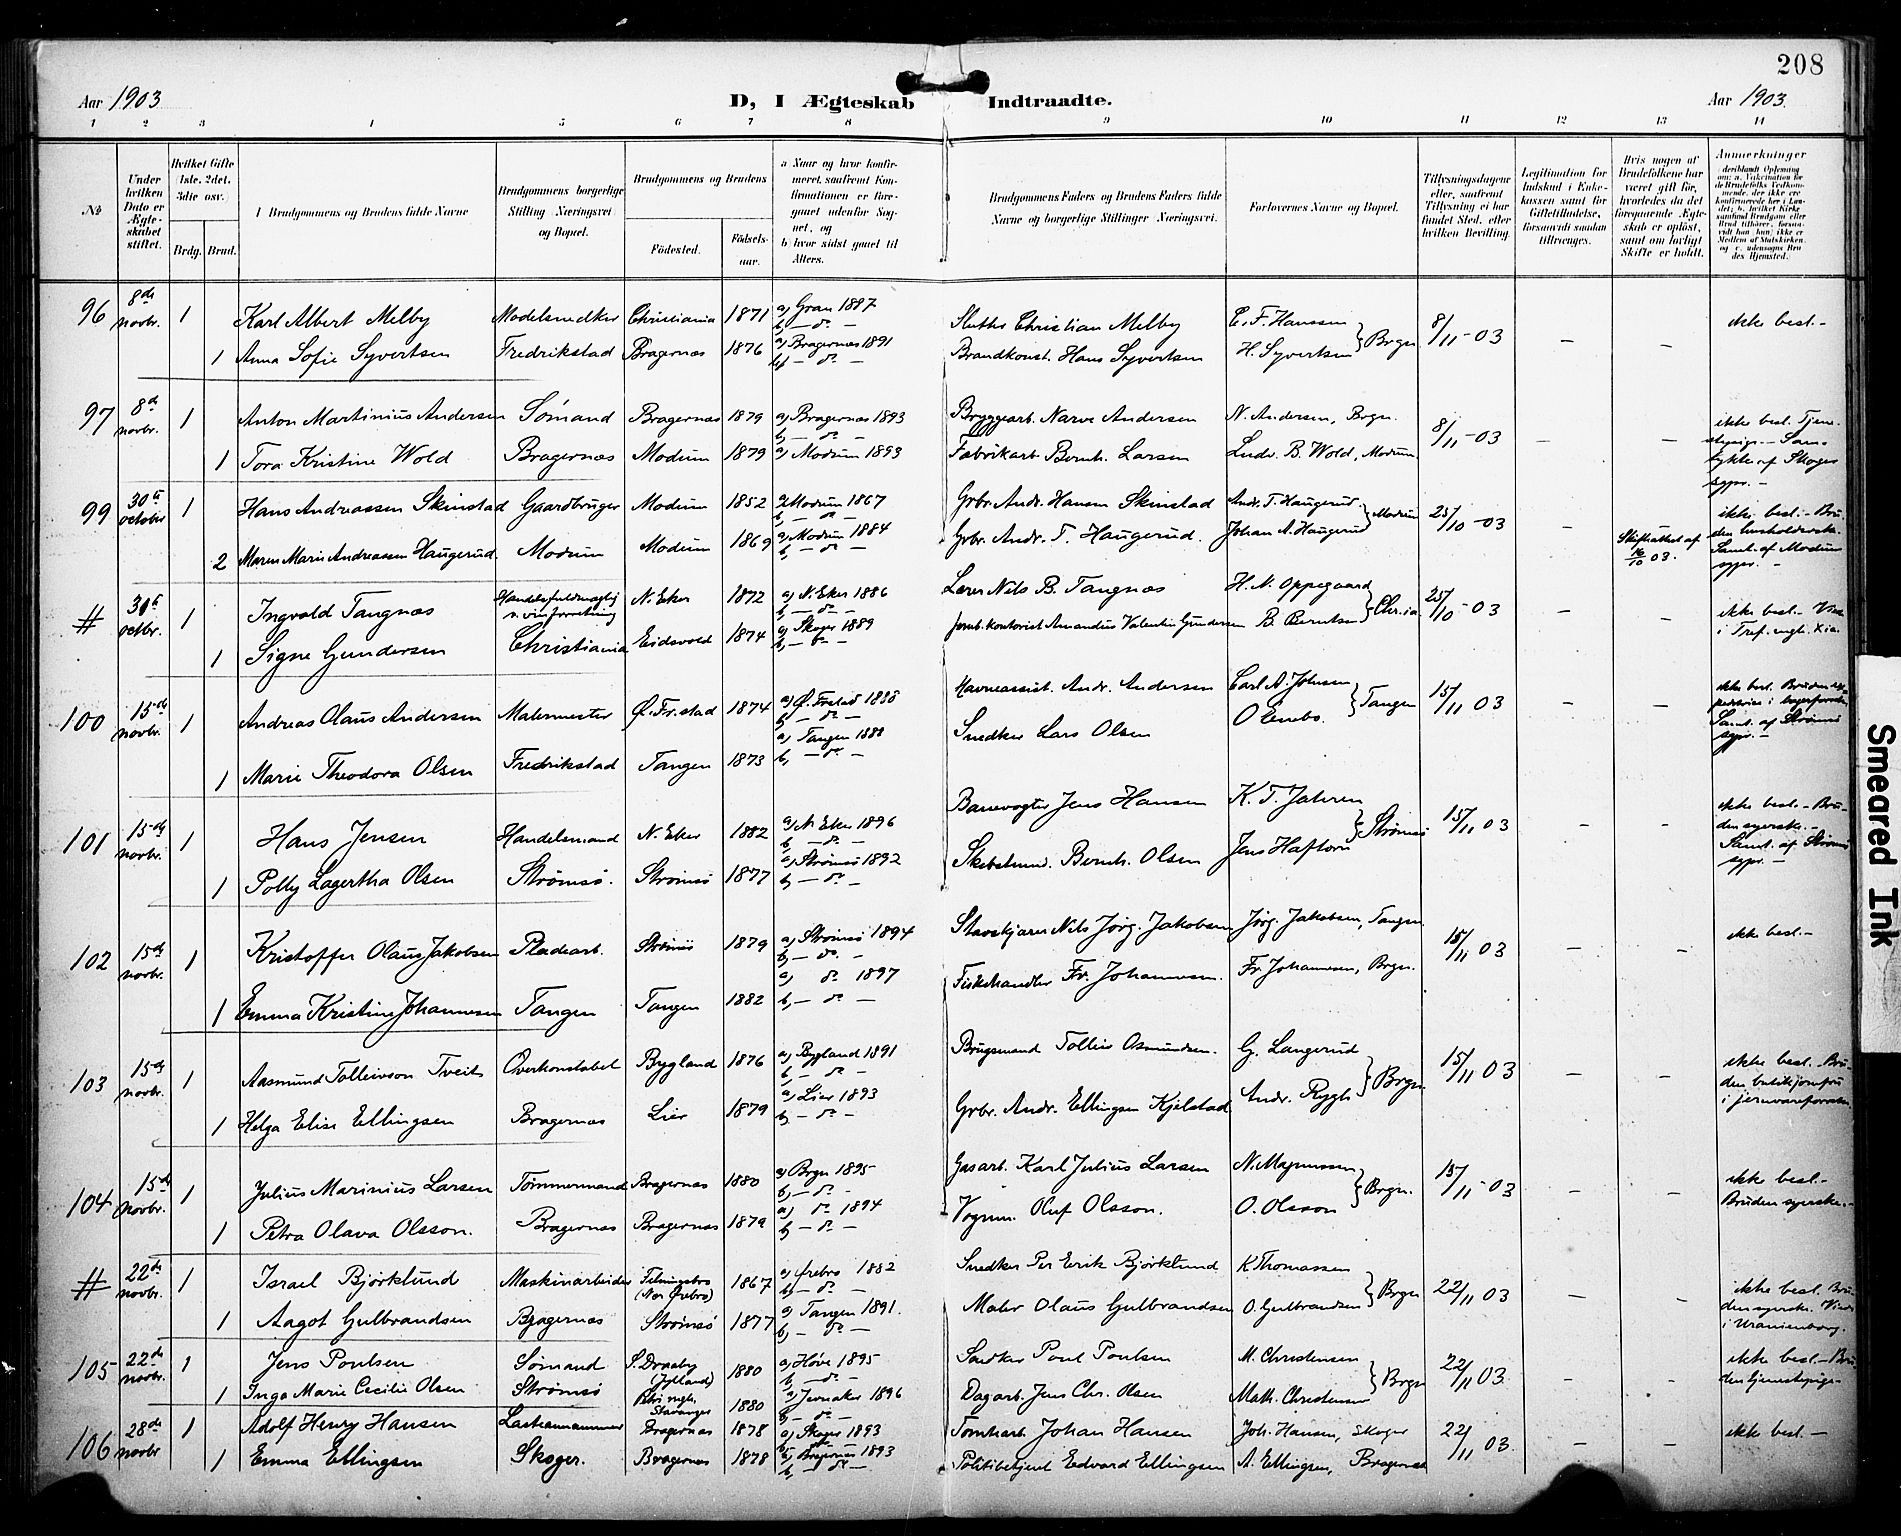 208
Aar 1903
D, I Ægteskab Indtraadte.
Aar 1903.
1 2 3 4 5 6 7 8 9 10 11 12 13 14
№
Under hvilken Dato er Ægteskabet stiftet.
Hvilket Gifte (1ste, 2det, 3die osv.)
Brdg. Brud.
Brudgommens og Brudens fulde Navne
Brudgommens borgerlige Stilling Næringsvei og Bopæl.
Brudgommens og Brudens
Fødested. Fødselsaar.
a Naar og hvor konfirmeret, saafremt Konfirmationen er foregaaet udenfor Sognet, og
b hvor sidst gaaet til Alters.
Brudgommens Faders og Brudens Faders fulde Navne og borgerlige Stillinger Næringsvei.
Forlovernes Navne og Bopæl.
Tillysningsdagene eller, saafremt Tillysning ei har fundet Sted, efter hvilken Bevilling.
Legitimation for Indskud i Enkekassen samt for Giftetilladelse, forsaavidt saadan tiltrænges.
Hvis nogen af Brudefolkene har været gift før, hvorledes da det foregaaende Ægteskab er opløst, samt om lovligt Skifte er holdt.
Anmerkninger
96 8de novbr. 1 Karl Albert Melby Modelsnedker Christiania 1871 a) Gran 1887 b, – do – Christian Melby C. F. Hanssen } Brgn 8/11-03 – – ikke besl.–
1 Anna Sofie Syvertsen Fredrikstad Bragernæs 1876 a) Bragernæs 1891 b, – do – Brandkonst. Hans Syvertsen H. Syvertsen
97 8de novbr. 1 Anton Martinius Andersen Sømand Bragernæs 1879 a) Bragernæs 1893 b, – do – Bryggearb. Narve Andersen N. Andersen, Brgn. 8/11-03 – – ikke besl. Tjenestepige.– Samtykke af Skoger sgpr. –
1 Tora Kristine Wold Bragernæs Modum 1879 a) Modum 1893 Fabrikarb. Bernh. Larsen Ludv. B. Wold, Modum
99 30te octobr 1 Hans Andreassen Skinstad Gaardbruger Modum 1852 a, Modum 1867 b, – do – Grbr. Andr. Hansen Skinstad Andr. T. Haugerud } Modum 25/10-03 – ikke besl.– Bruden husholderske. Samt. af Modum sgpr. –
2 Maren Marie Andreassen Haugerud Modum Modum 1869 a) Modum 1884 b, – do – Grbr. Andr. T. Haugerud. Johan A. Haugerud Skifteattest af 16/10 03.
# 30te octbr. 1 Ingvald Tangnæs Handelsfuldmægtig N. Eker 1872 a) N. Eker 1886 b, – do – Lærer Nils B. Tangnæs H. N. Oppegaard } Chr.ia 25/10-03 – – ikke besl.– Viet i Tref. mgh. Xia.
1 Signe Gundersen Christiania Eidsvold 1874 a) Skoger 1889 b, – do – Jernb. kontorist Amandus Valentin Gundersen B. Berntsen
100 15de novbr. 1 Andreas Olaus Andersen Malermester Ø. Fr.stad 1874 a) Ø. Frstad 1888 b, – do – Havneassist. Andr. Andersen Carl A. Johnsen } Tangen 15/11 03 – – ikke besl. Samt. af Strømsø sgpr. –
1 Marie Theodora Olsen Fredrikstad Tangen 1873 a) Tangen 1888 b, – do – Snedker Lars Olsen O. Enebo.
101 15de novbr. 1 Hans Jensen Handelsmand N. Eker 1882 a) N. Eker 1896 b, – do – Banevogter Jens Hansen K. T. Jahren } Strømsø 15/11 03 – – ikke besl.– Bruden syerske. – Samt. af Strømsø sgpr. –
1 Polly Lagertha Olsen Strømsø. Strømsø 1877 a) Strømsø 1892 b, – do – Bernh. Olsen Jens Haftorn
102 15de novbr. 1 Kristoffer Olaus Jakobsen Pladsarb. Strømsø 1879 a) Strømsø 1894 b, – do – Nils Jørg. Jakobsen Jørg. Jakobsen, Tangen 15/11 03 – – ikke besl.–
1 Emma Kristine Johannesen Tangen Tangen 1882 a) do 1897 b, – do – Fiskehandler Fr. Johannesen. Fr. Johannesen, Brgn.
103 15de novbr. 1 Aasmund Tolleivson Tveit Overkonstabel Bygland 1876 a) Bygland 1891 b, – do – Brugsmand Tolleiv Osmundsen. G. Langerud } Brgn 15/11 03 – – ikke besl.– Bruden butikjomfru
1 Helga Elise Ellingsen Bragernæs Lier 1879 a) Lier 1893 b, – do – Grbr. Andr. Ellingsen Kjelstad Andr. Rygh
104 15de novbr. 1 Julius Marinius Larsen Tømmermand Bragernæs 1880 a) Brgn 1895 b, – do – Gasarb. Karl Julius Larsen N. Magnussen } Brgn. 15/11-03 – – ikke besl.– Bruden syerske.–
1 Petra Olava Olsson. Bragernæs Bragernæs 1879 a) do 1894 b, – do – Vognm. Oluf Olsson. O. Olsson
# 22de novbr. 1 Israel Bjørklund Maskinarbeider (Nær Ørebro) 1867 a) Ørebro 1882 b, – do – Snedker Per Erik Bjørklund K Thomassen } Brgn 22/11 03 – – ikke besl. Bruden syerske. Viede i Uranienborg.
1 Aagot Gulbrandsen Bragernæs Strømsø 1877 a) Tangen 1891. b, – do – Maler Olaus Gulbrandsen O. Gulbrandsen
105 22de novbr. 1 Jens Poulsen Sømand S. Draaby (Jylland) 1880 a) Høve 1895 b, – do – Poul Poulsen M. Christensen } Brgn 22/11 03. – – ikke besl.– Bruden tjenestepige–
1 Inga Marie Cecilie Olsen Strømsø Petri mgh. Stavanger 1880 a) Jevnaker 1896 b, – do – Dagarb. Jens Chr. Olsen Math. Christensen
106 28de novbr 1 Adolf Henry Hansen Bragernæs 1878 a) Skoger 1893 Tomtearb. Johan Hansen Joh. Hansen, Skoger 22/11 03. – – ikke besl.–
1 Emma Ellingsen Skoger. Bragernæs 1878 a) Bragernæs 1893 b, – do – Politibetjent Edvard Ellingsen A. Ellingsen, Bragernæs
Smeared Ink